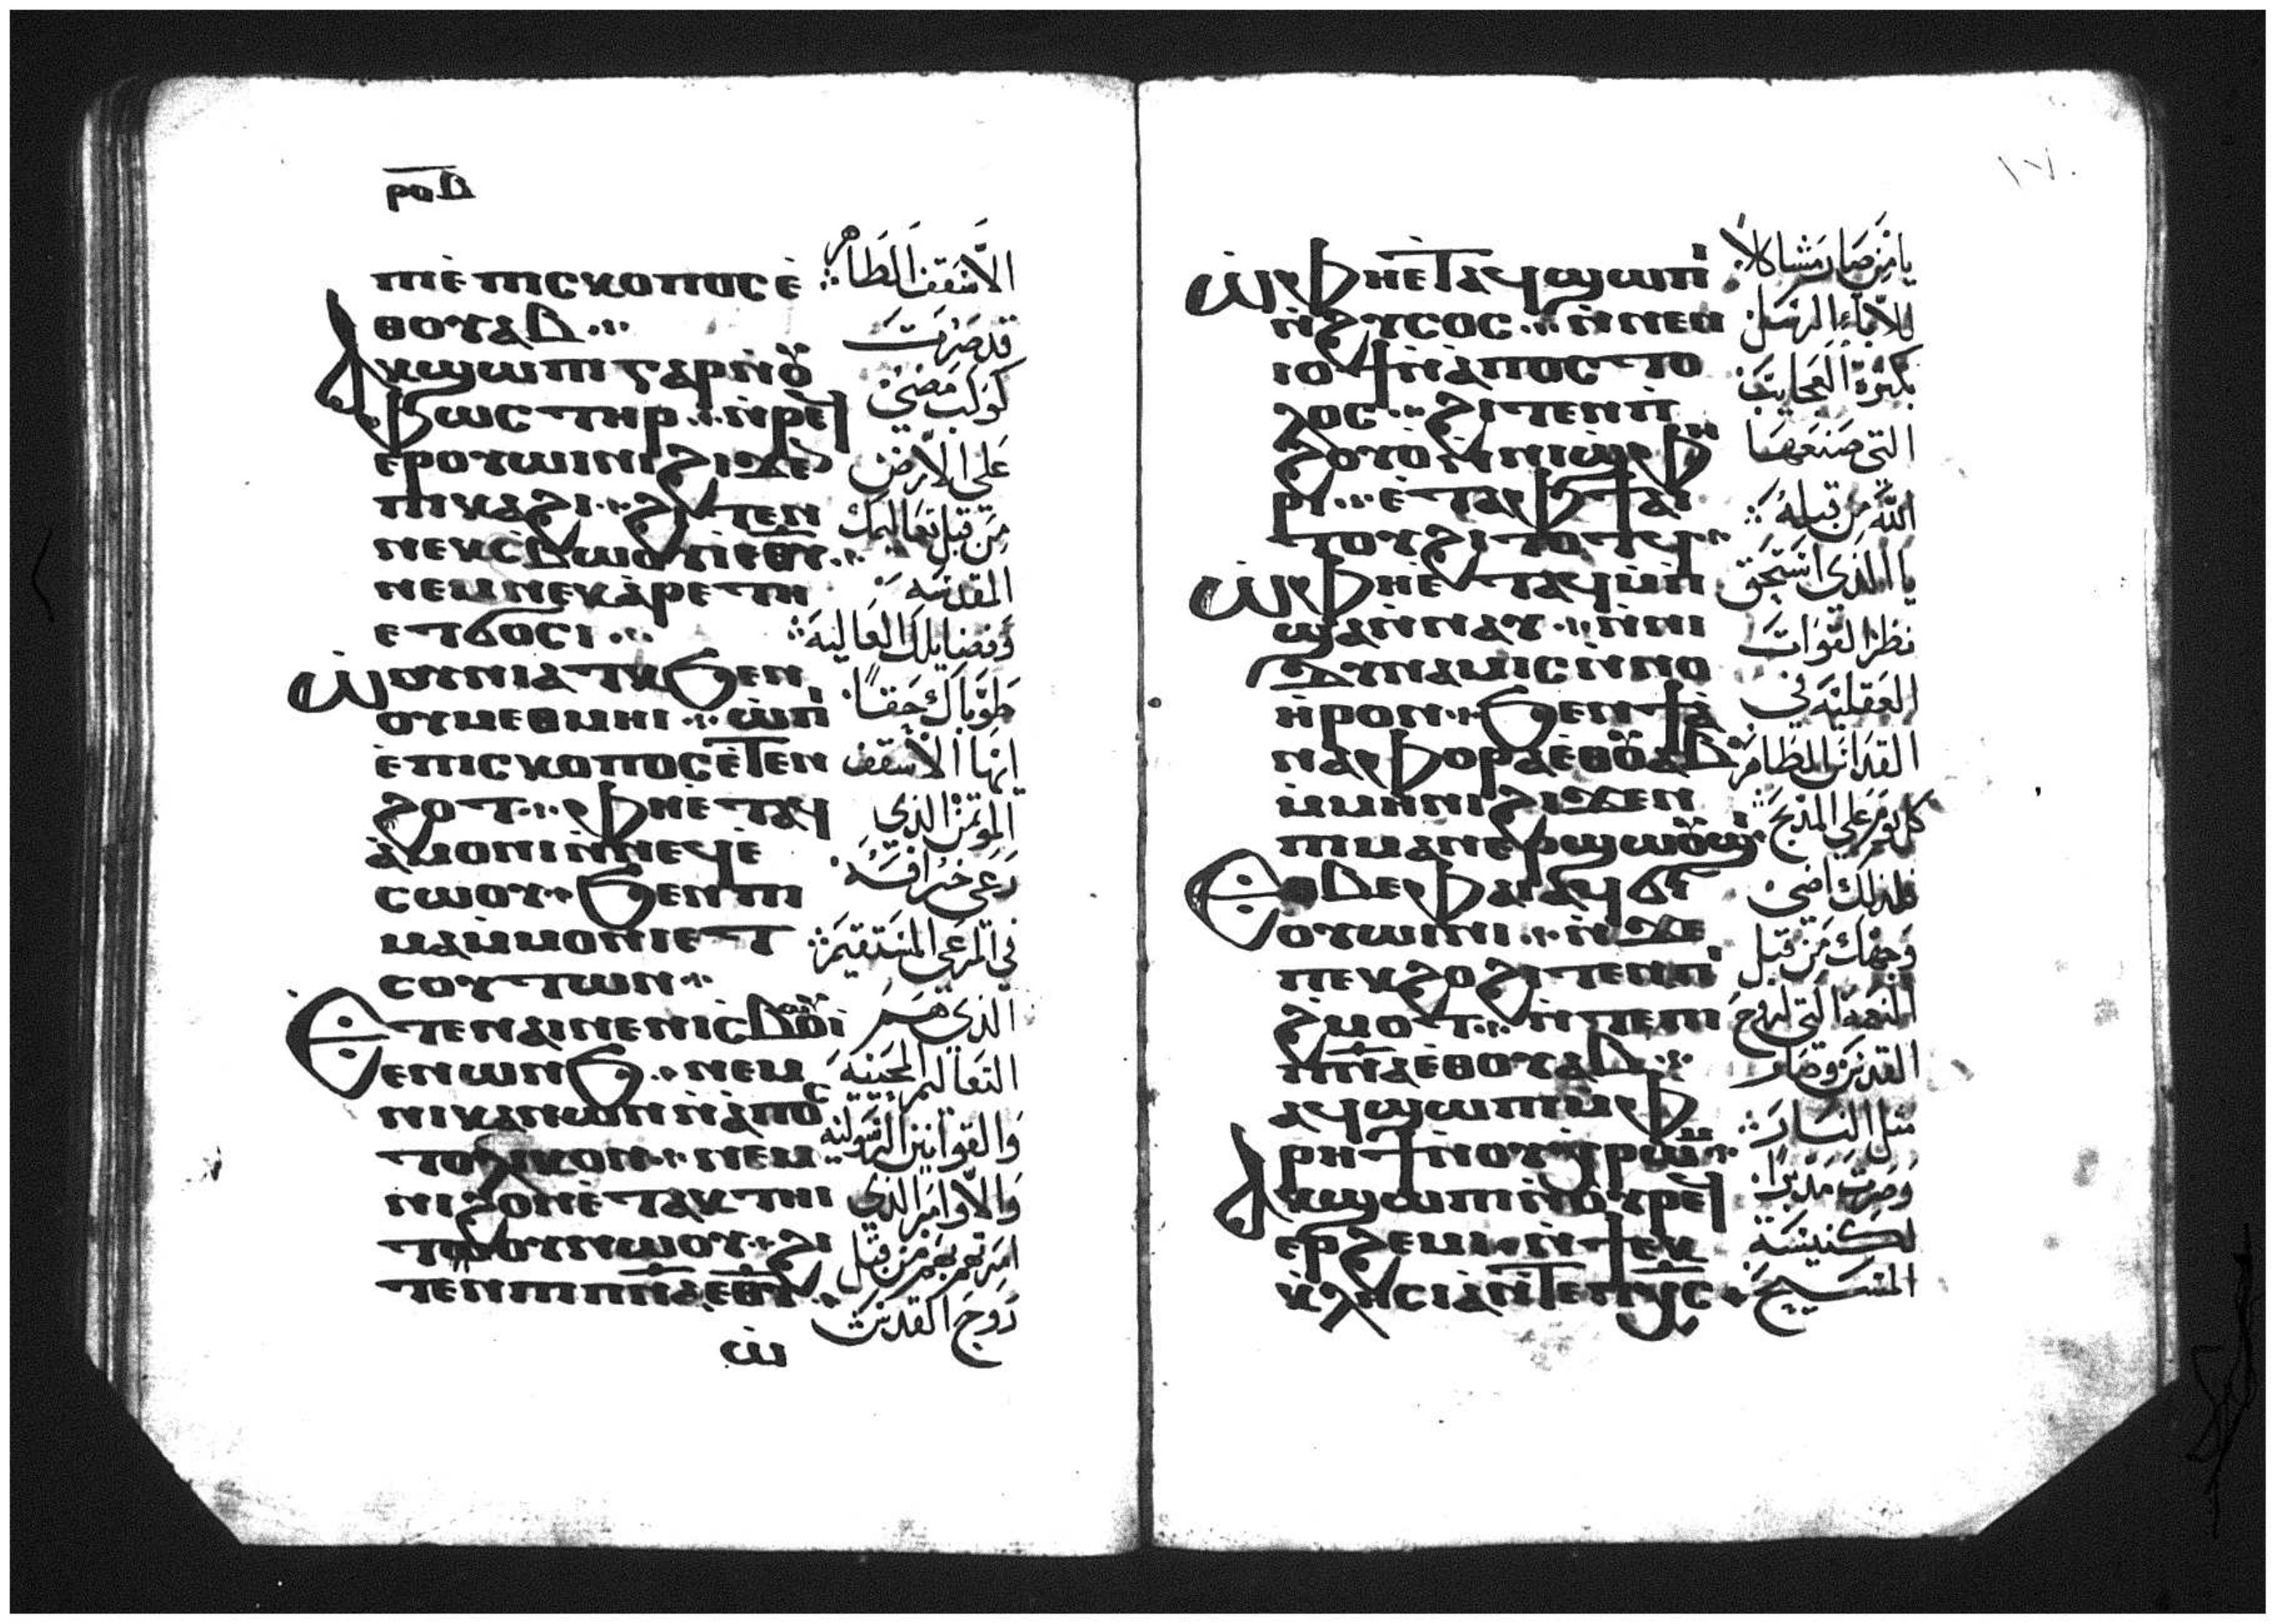 ⲣⲟⲇ
ⲡⲓⲉ̀ⲡⲓⲥⲕⲟⲡⲟⲥ ⲉ̀
ⲑⲟⲩⲁⲃ
ⲁⲕϣⲱⲡⲓ ⲅⲁⲣ ⲛ̀ⲟⲩ
ⲫⲱⲥⲧⲏⲣ ⲛ̀ⲣⲉϥ
ⲉⲣⲟⲩⲱⲓⲛⲓ ϩⲓϫⲉⲛ
ⲡⲓⲕⲁϩⲓ ϩⲓⲧⲉⲛ
ⲛⲉⲕⲥ̀ⲃⲱⲟⲩⲓ̀ ⲉⲑⲩ
ⲛⲉⲙ ⲛⲉⲕⲁ̀ⲣⲉⲧⲏ
ⲉⲧϭⲟⲥⲓ
ⲱ̀ⲟⲩⲛⲓⲁⲧⲕ ϧⲉⲛ
ⲟⲩⲙⲉⲑⲙⲏⲓ ⲱ̀ ⲡⲓ
ⲉ̀ⲡⲓⲥⲕⲟⲡⲟⲥ ⲉ̀ⲧⲉⲛ
ϩⲟⲧ ⲫⲏⲉ̀ⲧⲁϥ
ⲁ̀ⲙⲟⲛⲓ ⲛ̀ⲛⲉϥⲉ̀
ⲥⲱⲟⲩ ϧⲉⲛ ⲡⲓ
ⲙⲁⲙ̀ⲙⲟⲛⲓ ⲉⲧ
ⲥⲟⲩⲧⲱⲛ
ⲉⲧⲉⲛⲁⲓⲛⲉ ⲛⲓⲥ̀ⲃⲱⲟⲩⲓ̀
ⲉⲛⲱⲛϧ ⲛⲉⲙ
ⲛⲓⲕⲁⲛⲱⲛ ⲛ̀ⲁ̀ⲡⲟⲥ
ⲧⲟⲗⲓⲕⲟⲛ ⲛⲉⲙ
ⲛⲓϩⲟⲛ ⲉ̀ⲧⲁⲕⲧⲏⲓ
ⲧⲟⲩ ⲛⲱⲟⲩ ϩⲓ
ⲧⲉⲛ ⲡⲓⲡⲛⲁ ⲉⲑⲩ
ⲱ̀
الأسقف الطاهر
قد صرت
كوكب مضئ
على الأرض
من قبل تعاليمك
المقدسة
وفضايلك العالية
طوباك حقا
ايها الأسقف
المؤتمن الذي
رعى خرافه
في المرعى المستقيمة
الذي هم
التعاليم المحيية
والقوانين الرسولية
والأوامر الذي
امرتهم بهم من قبل
روح القدس
١٧٠
ⲱ̀ ⲫⲏⲉ̀ⲧⲁϥϣⲱⲡⲓ
ⲛ̀ϩⲩⲥⲟⲥ ⲛ̀ⲛⲉⲛ
ⲓⲟϯ ⲛ̀ⲁ̀ⲡⲟⲥⲧⲟ
ⲗⲟⲥ ϩⲓⲧⲉⲛ ⲡ̀
ϩⲟⲩⲟ̀ ⲛ̀ⲛⲓϣ̀ⲫⲏ
ⲣⲓ ⲉ̀ⲧⲁ ⲫϯ ⲁⲓ
ⲧⲟⲩ ϩⲓⲧⲟⲧϥ
ⲱ̀ ⲫⲏⲉ̀ⲧⲁϥⲙ̀ⲡ
ϣⲁ ⲛ̀ⲛⲁⲩ ⲛ̀ⲛⲓ
ⲇⲩⲛⲁⲙⲓⲥ ⲛ̀ⲛⲟ
ⲏ̀ⲣⲟⲛ ϧⲉⲛ ϯⲁ̀
ⲛⲁⲫⲟⲣⲁ ⲉⲑⲟⲩⲁⲃ
ⲙ̀ⲙⲏⲛⲓ ϩⲓϫⲉⲛ
ⲡⲓⲙⲁⲛⲉⲣϣⲱⲟⲩϣⲓ
ⲉⲑⲃⲉ ⲫⲁⲓ ⲁϥϭⲓ
ⲟⲩⲱⲓⲛⲓ ⲛ̀ϫⲉ
ⲡⲉⲕϩⲟ ϩⲓⲧⲉⲛ ⲡⲓ
ϩ̀ⲙⲟⲧ ⲛ̀ⲧⲉ ⲡⲓ
ⲡⲛⲁ ⲉⲑⲟⲩⲁⲃ
ⲁϥϣⲱⲡⲓ ⲙ̀ⲫ
ⲣⲏϯ ⲛ̀ⲟⲩⲭ̀ⲣⲱⲙ
ⲁⲕϣⲱⲡⲓ ⲛ̀ⲟⲩⲣⲉϥ
ⲉⲣϩⲉⲙⲓ ⲛ̀ϯⲉⲕ
ⲕⲗⲏⲥⲓⲁ ⲛ̀ⲧⲉ ⲡⲭⲥ
يا من صار مشاكلا
للآباء الرسل
بكثرة العجايب
التي صنعها
الله من قبله
يا الذي استحق
نظر القوات
العقلية في
القداس الطاهر
كل يوم على المذبح
فلذلك اضئ
وجهك من قبل
النعمة التي لروح
القدس وصار
مثل النار
وصرت مدبرا
لكنيسة
المسيح